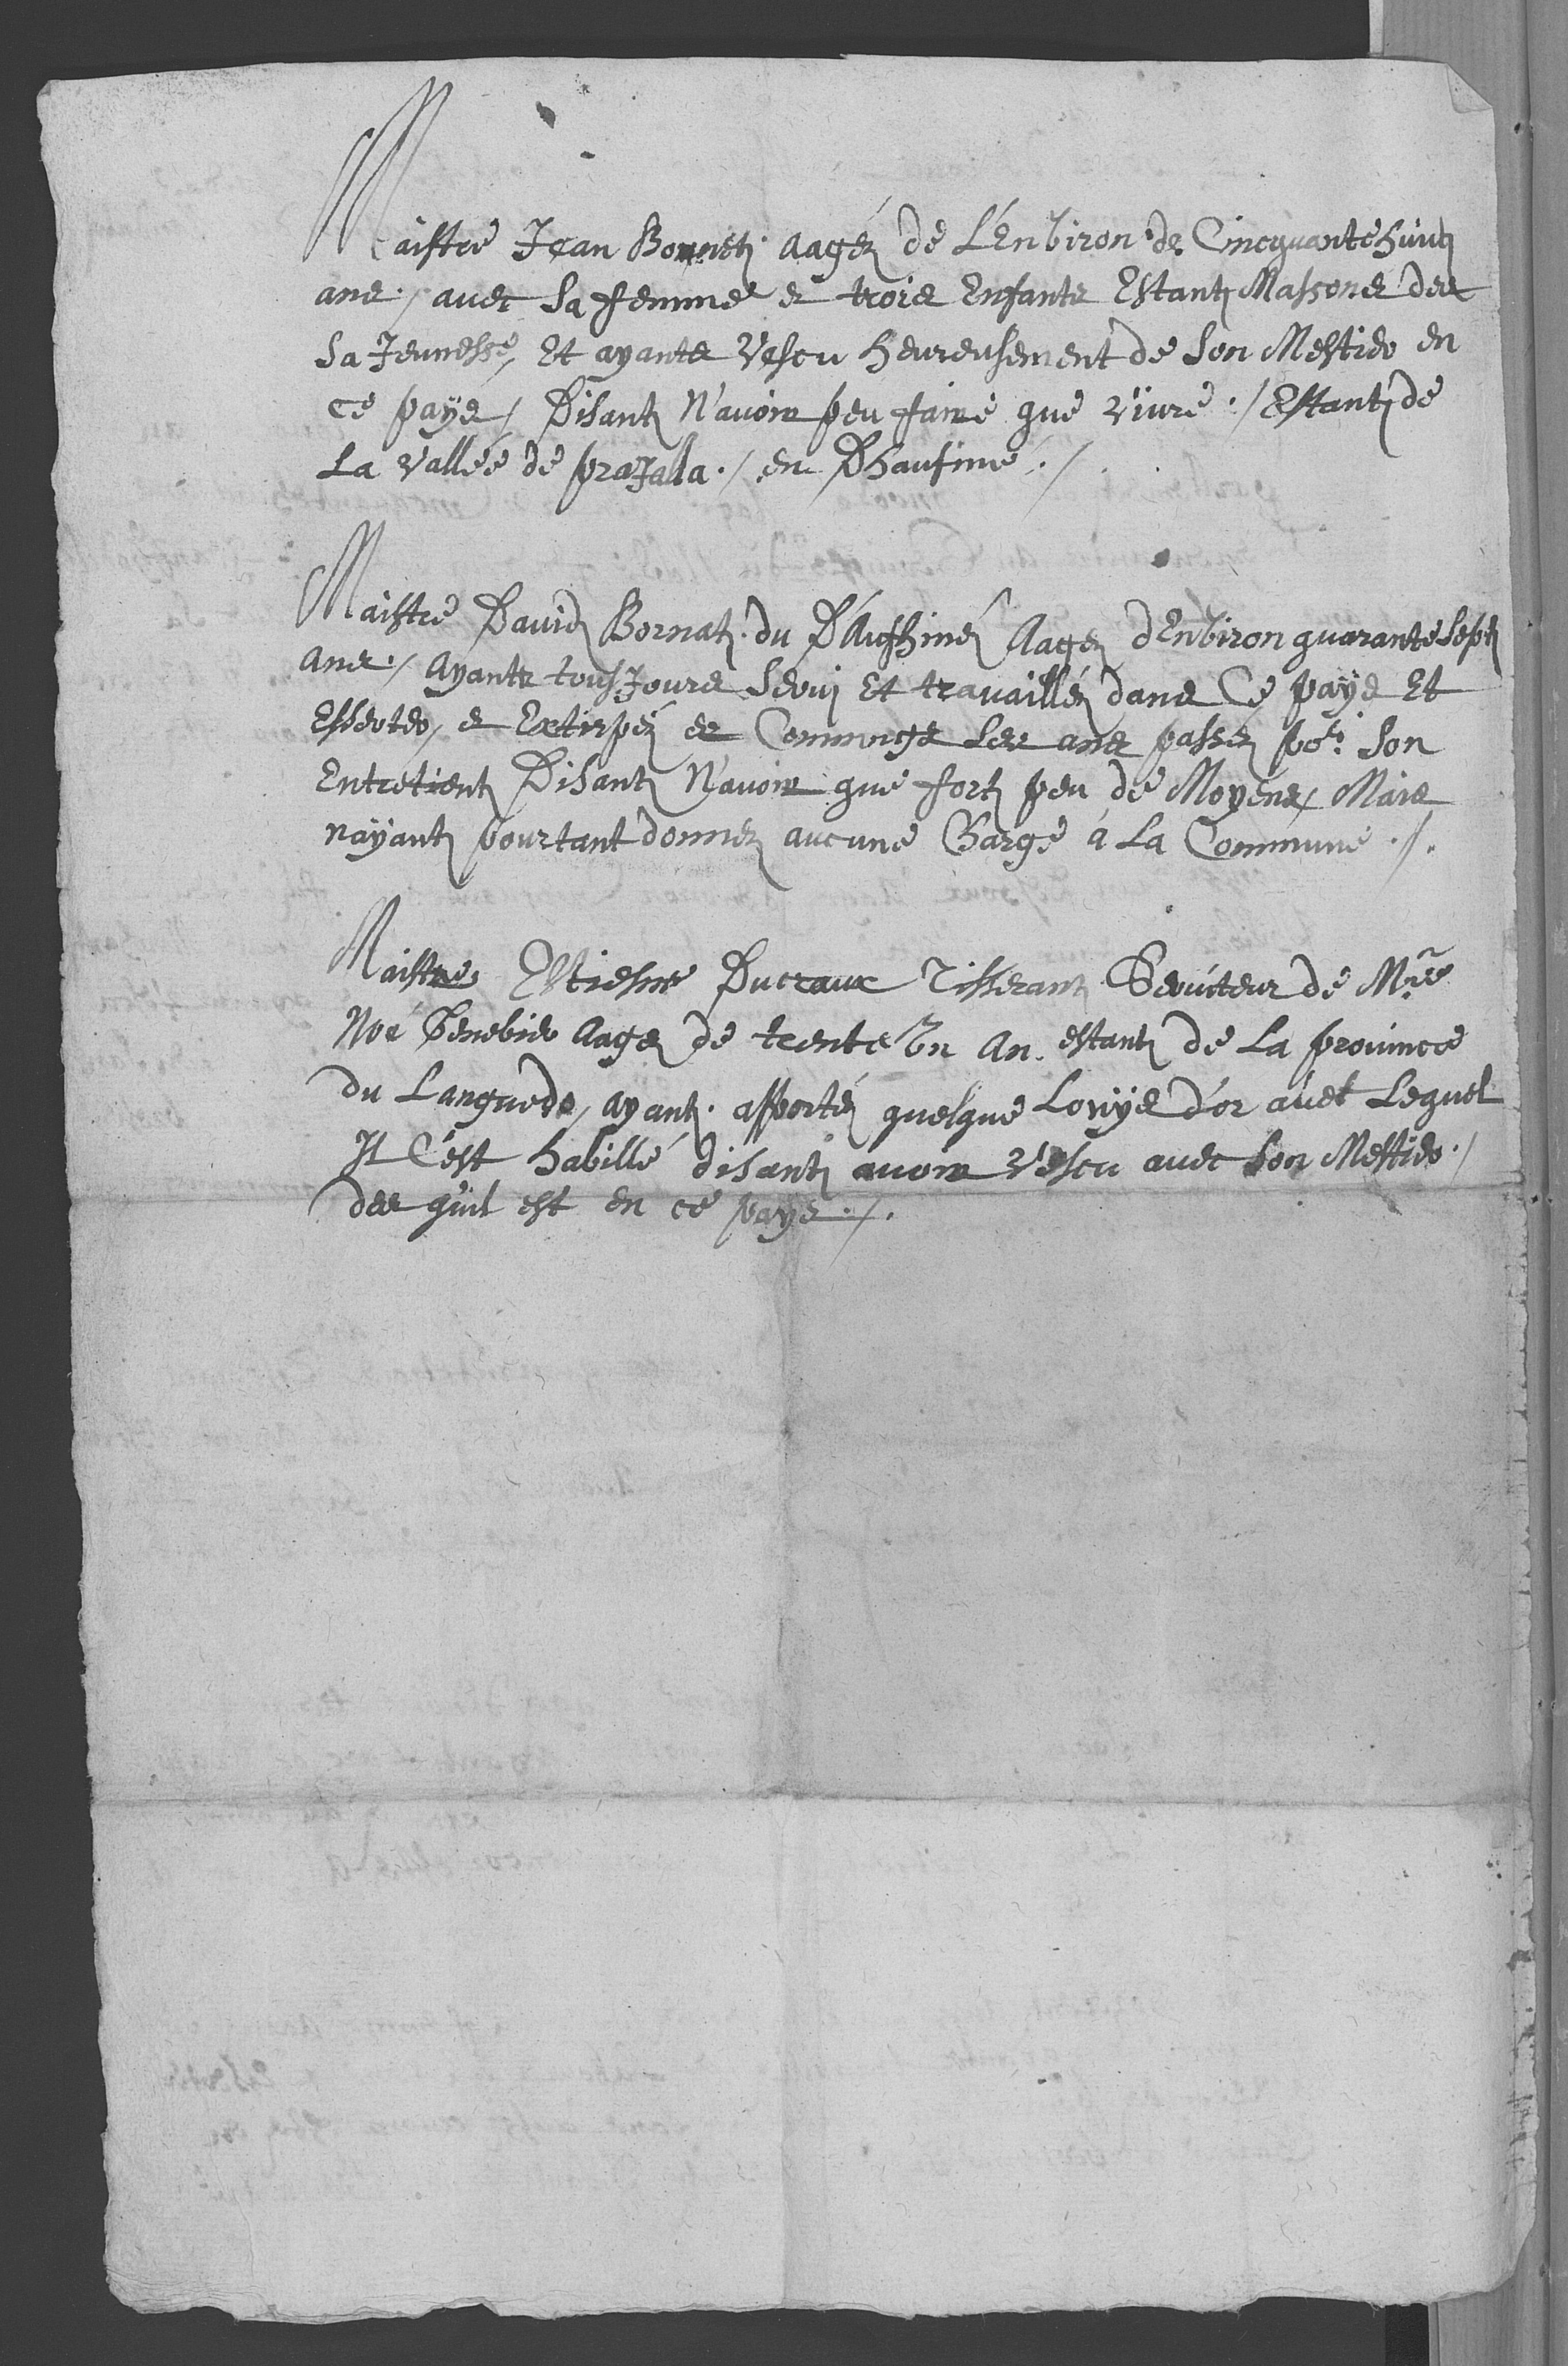 Maistre Jean Bonnet aagéz de L'Environ de Cincquantehuict
ans ./ avec Sa femme & trois Enfants Estant Massons des
Sa Jeunesse, Et ayants Vescu heureusement de Son Mestier en
Ce pays / Disant N'avoir peu faire que vivre ./ Estant de
La vallée de praJalla ./ en Dhaufiné ./.
Maistre David Bornat. du D'Aufhinéz Aagez d'Environ quarante Sept
Ans ./ Ayants tousJours Servi Et travailléz dans Ce pays Et
Esserter, & Extirpéz es Communes Les ans passez po.r Son
Entretient Disant N'avoir que fort peu de Moyens / Mais
n'ayant pourtant donnez aucune Charge à La Commune ./.
Maistre Estiesne Ducraux Tisserant Serviteur de Mre
Noé Senebier Aagez de trente Un An. estant de La province
du Languedo, ayant. apportéz quelque Louys d'or avet Lequel
Il C'est habillé disant avoir Vescu avec Son Mestier ./
des qu'il est en ce pays ./.